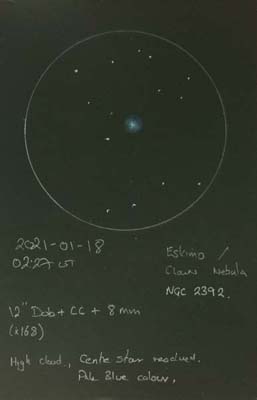 2021-01-18
02:27 UT
Eskimo /
Clown Nebula
NGC 2392.
12" Dob + CC + 8mm
(x168)
High cloud, Centre star resolved.
Pale Blue colour,